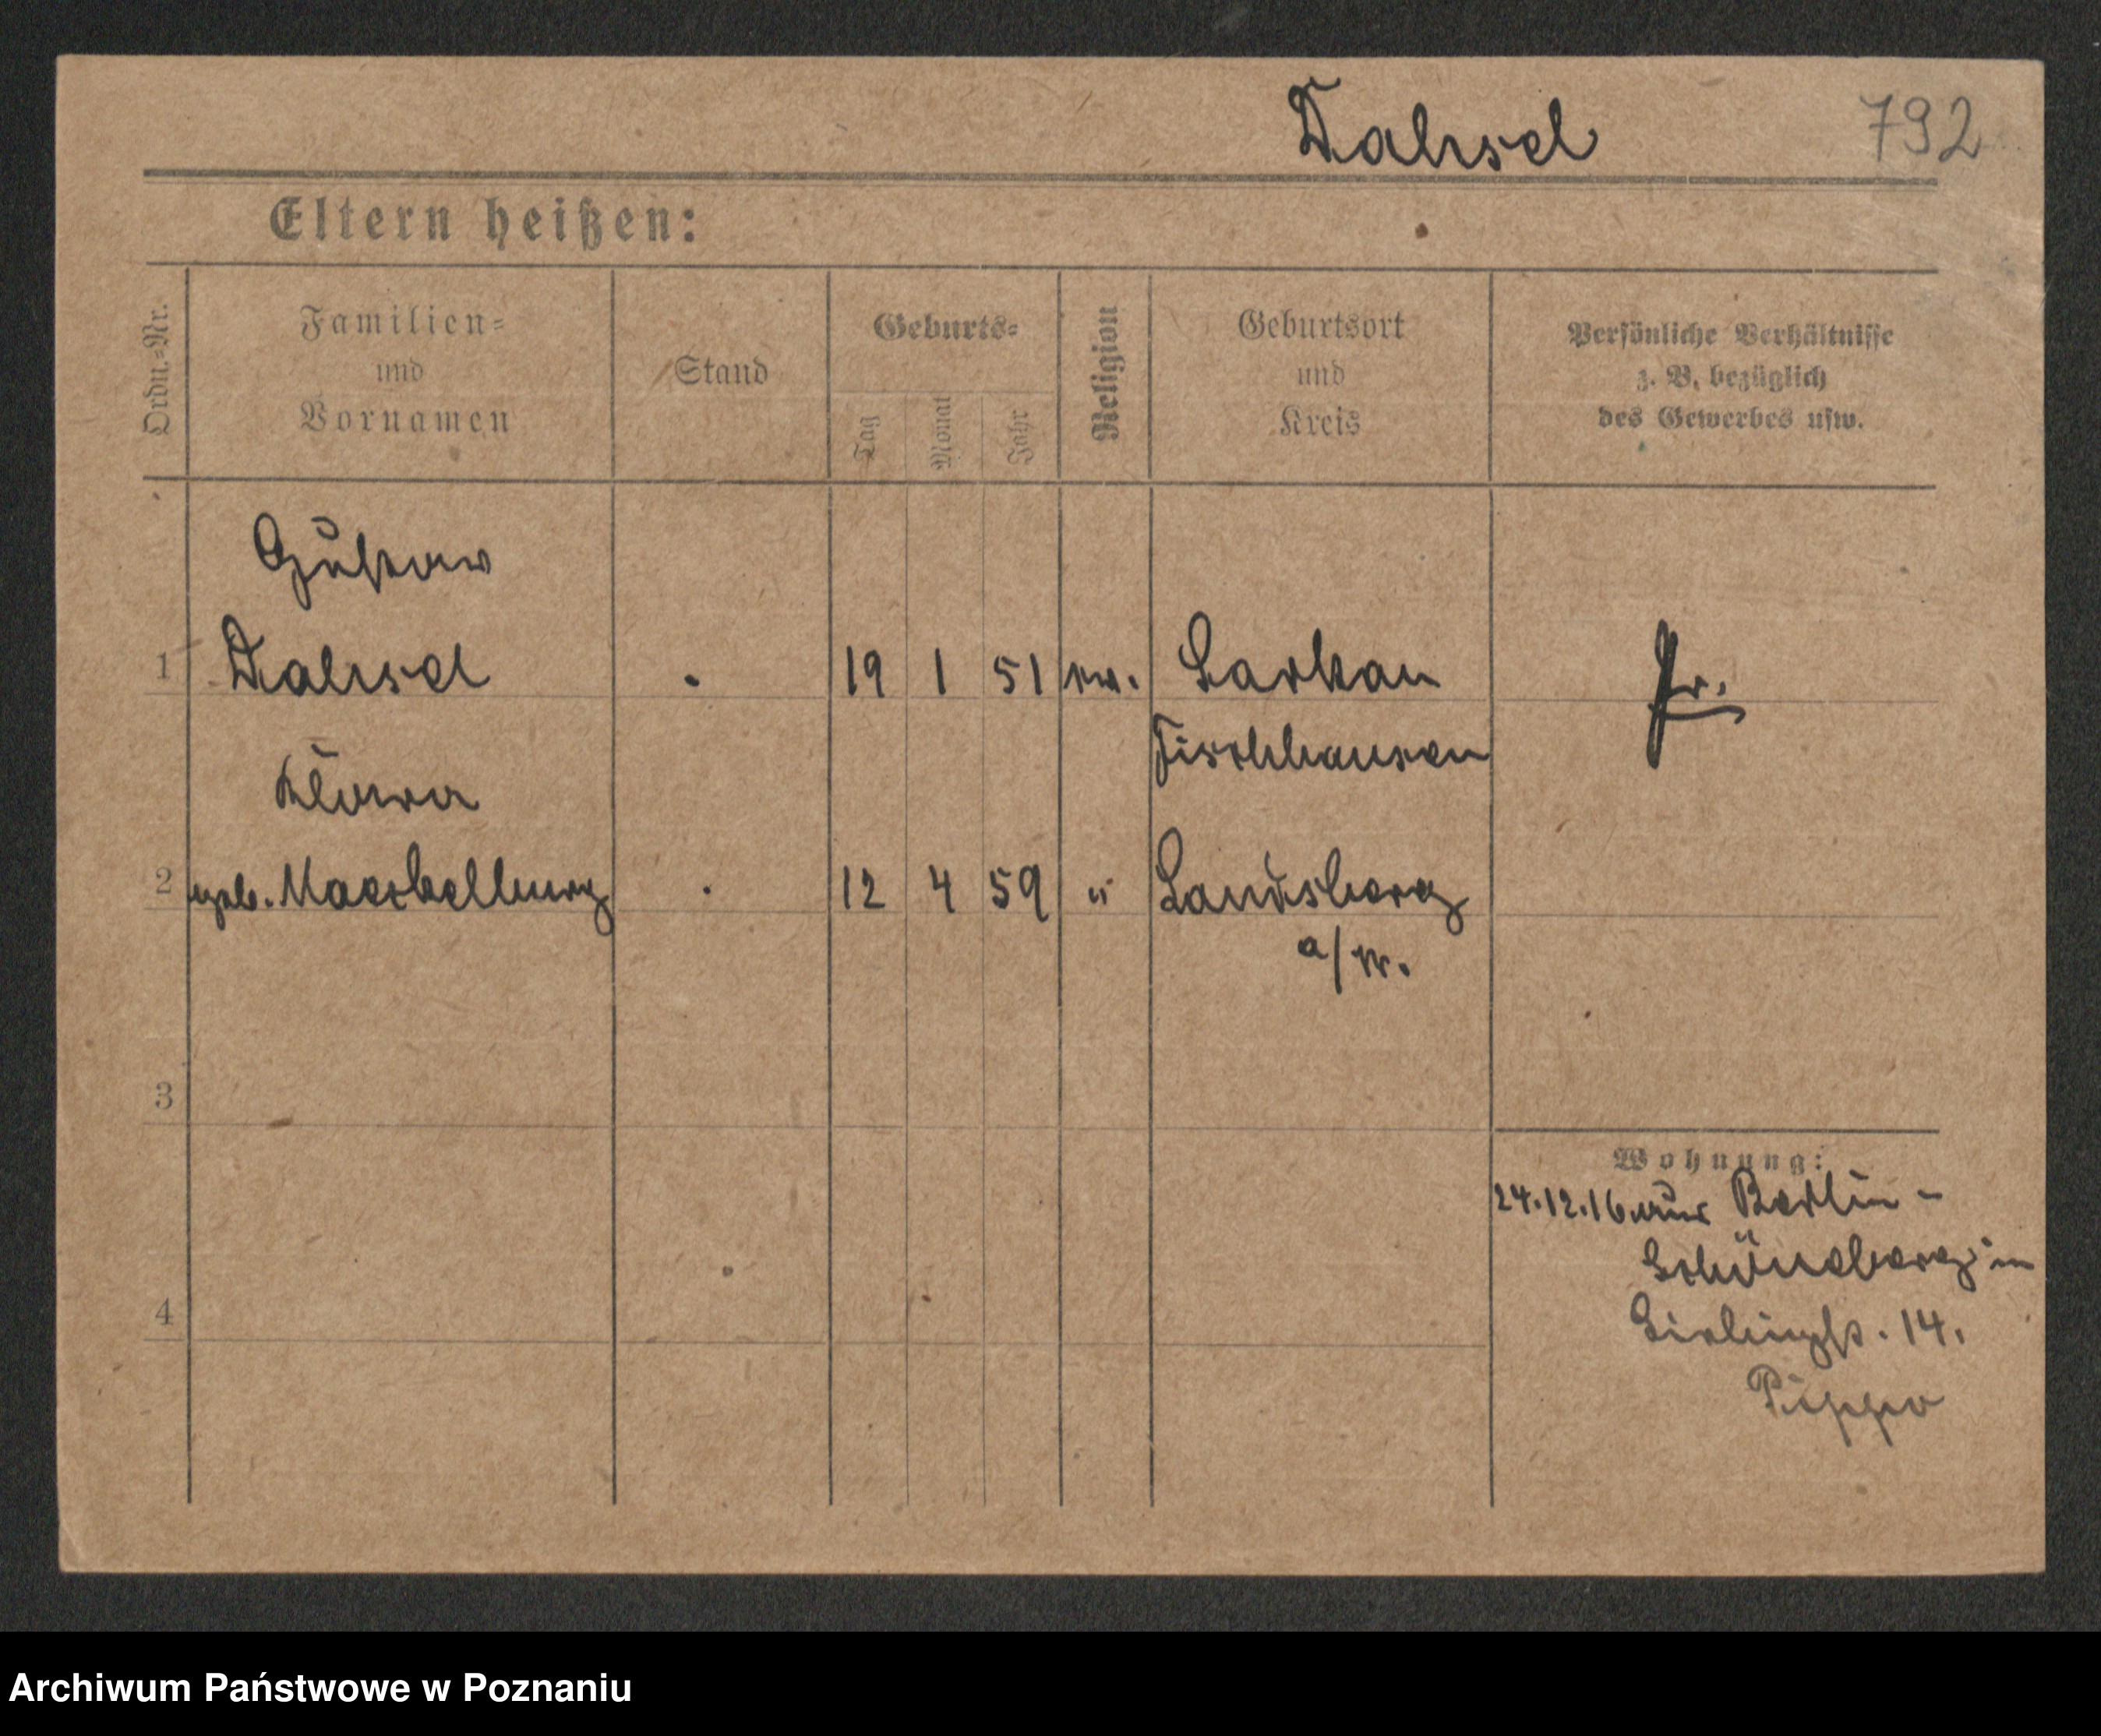 Dahsel 792
Eltern heißen:
Ordn.-Nr.
Familien-
und
Vornamen
Stand
Geburts-
Tag
Monat
Jahr
Religion
Geburtsort
und
Kreis
Persönliche Verhältnisse
z. B. bezüglich
des Gewerbes usw.
Gustav
1 Dahsel . 19 1 51 ev. Sarkau Pr.
Fischhausen
Klara
2 geb. . 12 4 59 " Landsberg
a/W.
3
Wohnung:
24.12.16 aus Berlin-
Schöneberg in
4
14.
Archiwum Państwowe w Poznaniu